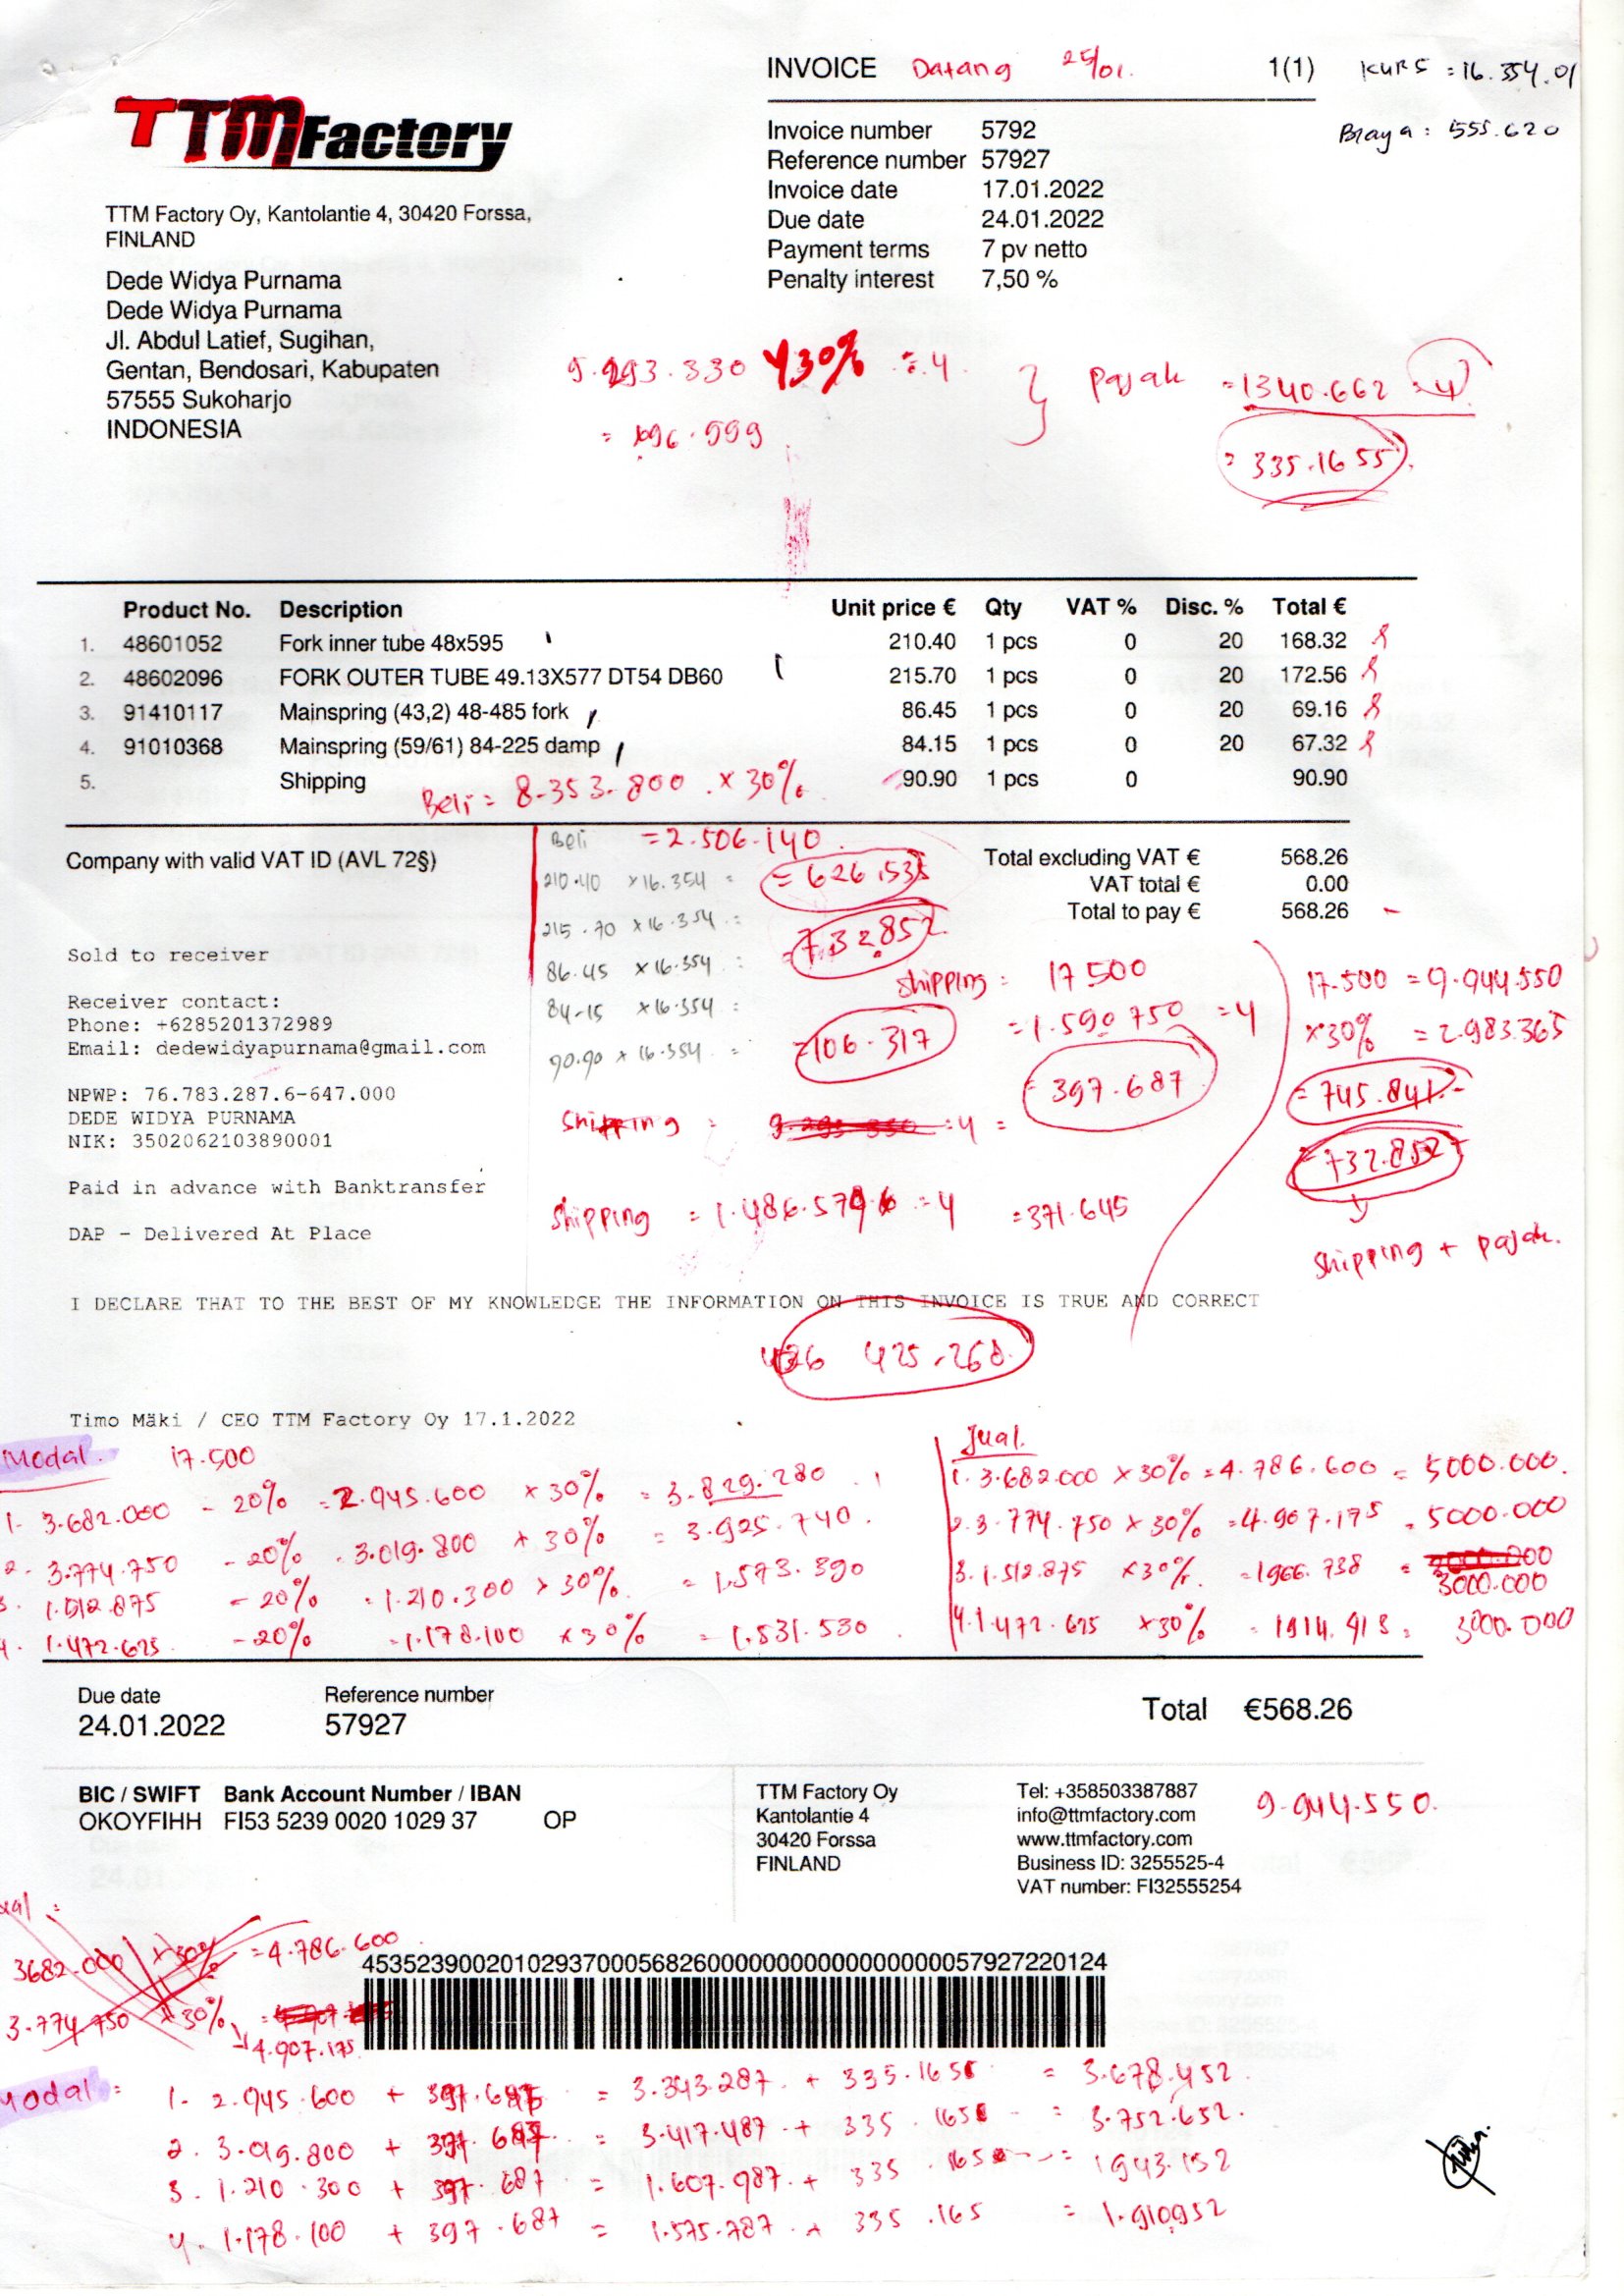 INVOICE Datang 25/01. 1(1) KURS = 16.354.01
TTM Factory
Invoice number 5792 Biaya : 555.620
Reference number 57927
Invoice date 17.01.2022
Due date 24.01.2022
Payment terms 7 pv netto
Penalty interest 7,50 %
TTM Factory Oy, Kantolantie 4, 30420 Forssa,
FINLAND
Dede Widya Purnama
Dede Widya Purnama
Jl. Abdul Latief, Sugihan,
Gentan, Bendosari, Kabupaten
57555 Sukoharjo
INDONESIA
9.293.330 30% : 4
Pajak = 1340.662 : 4
= 335.1655
Product No. Description Unit price € Qty VAT % Disc. % Total €
1. 48601052 Fork inner tube 48x595 210.40 1 pcs 0 20 168.32
2. 48602096 FORK OUTER TUBE 49.13X577 DT54 DB60 215.70 1 pcs 0 20 172.56
3. 91410117 Mainspring (43,2) 48-485 fork 86.45 1 pcs 0 20 69.16
4. 91010368 Mainspring (59/61) 84-225 damp 84.15 1 pcs 0 20 67.32
5. Shipping 90.90 1 pcs 0 90.90
Beli = 8.353.800 x 30%
Beli = 2.506.140
Company with valid VAT ID (AVL 72§)
210.40 x 16.354 =
= 626.535
215.70 x 16.354 :
= 732.852
86.45 x 16.354 :
84.15 x 16.354 :
90.90 x 16.354 =
= 106.317
Total excluding VAT € 568.26
VAT total € 0.00
Total to pay € 568.26
Sold to receiver
Receiver contact:
Phone: +6285201372989
Email: dedewidyapurnama@gmail.com
NPWP: 76.783.287.6-647.000
DEDE WIDYA PURNAMA
NIK: 3502062103890001
Paid in advance with Banktransfer
DAP - Delivered At Place
Shipping : 17 500
= 1.590 750 = 4
= 397.687
17.500 = 9.944.550
x 30% = 2.983.365
= 745.841
= 732.852
Shipping + pajak.
Shipping : : 4 =
Shipping = 1.486.579 : 4 = 371.645
I DECLARE THAT TO THE BEST OF MY KNOWLEDGE THE INFORMATION ON THIS INVOICE IS TRUE AND CORRECT
425.268
Timo Mäki / CEO TTM Factory Oy 17.1.2022
Modal. 17.500
1. 3.682.000 - 20% = 2.945.600 x 30% = 3.829.280
2. 3.774.750 - 20% = 3.019.800 x 30% = 3.925.740.
3. 1.512.875 - 20% = 1.210.300 x 30% = 1.573.390
4. 1.472.625 - 20% = 1.178.100 x 30% = 1.531.530
Jual.
1. 3.682.000 x 30% = 4.786.600 = 5000.000.
2. 3.774.750 x 30% = 4.907.175 = 5000.000
3. 1.512.875 x 30% = 1966.738 = 3000.000
4. 1.472.625 x 30% = 1914.413 = 3000.000
Due date Reference number
24.01.2022 57927 Total €568.26
BIC / SWIFT Bank Account Number / IBAN
OKOYFIHH FI53 5239 0020 1029 37 OP
TTM Factory Oy
Kantolantie 4
30420 Forssa
FINLAND
Tel: +358503387887
info@ttmfactory.com
www.ttmfactory.com
Business ID: 3255525-4
VAT number: FI32555254
9.944.550.
3682.000 x 30% = 4.786.600
3.774.750 x 30%
4.907.175
453523900201029370005682600000000000000000057927220124
Modal :
1. 2.945.600 + 397.687 = 3.343.287 + 335.165 = 3.678.452
2. 3.019.800 + 397.687 = 3.417.487 + 335.165 = 3.752.652.
3. 1.210.300 + 397.687 = 1.607.987 + 335.165 = 1943.152
4. 1.178.100 + 397.687 = 1.575.787 + 335.165 = 1.910952